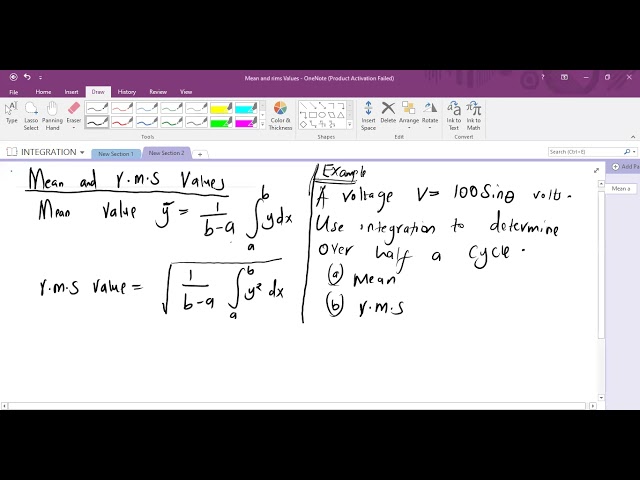 Mean and rms Values - OneNote (Product Activation Failed)
File Home Insert Draw History Review View
Type
Lasso Select
Panning Hand
Eraser
Tools
Color & Thickness
Shapes
Insert Space
Delete
Arrange
Rotate
Edit
Ink to Text
Ink to Math
Convert
INTEGRATION
New Section 1
New Section 2
+
Search (Ctrl+E)
Add Pa
Mean a
Mean and r.m.s Values
Mean value ȳ = 1/(b-a) ∫_a^b y dx
r.m.s value = √(1/(b-a) ∫_a^b y² dx)
Example
A voltage V = 100Sinθ volts.
Use integration to determine
over half a cycle.
(a) Mean
(b) r.m.s